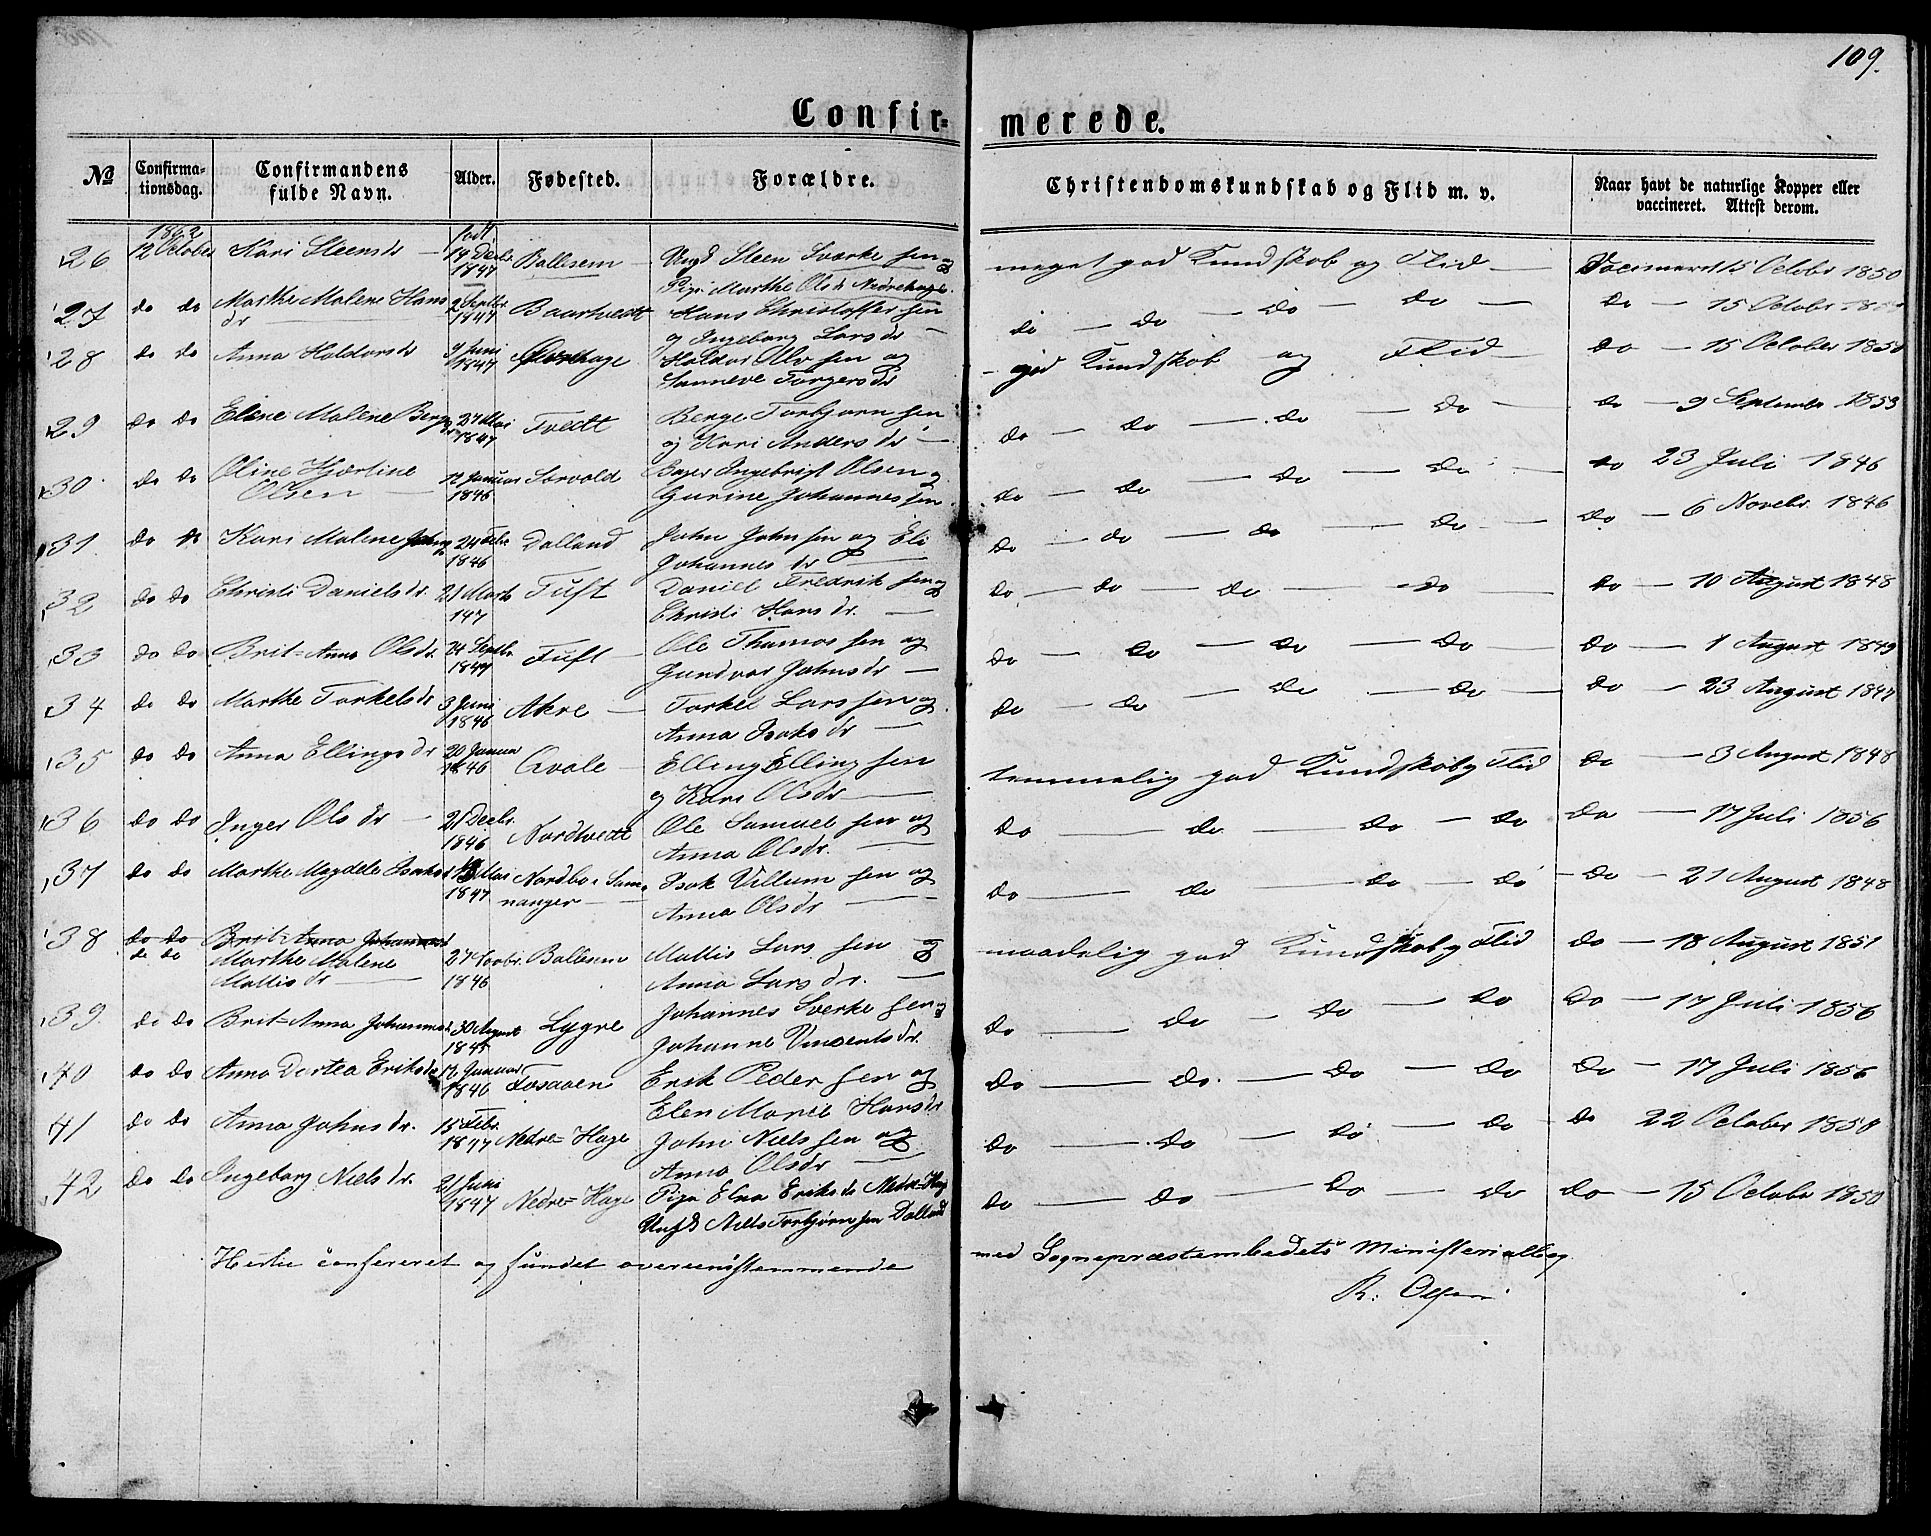 109.
Confir= merede.
No Confirma-tionsdag. Confirmandens fulde Navn. Alder. Fødested. Forældre. Christendomskundskab og Flid m. v. Naar havt de naturlige Kopper eller vaccineret. Attest derom.
1862 født
26 12 October Kari Steensdr 19 Decbr 1847 Ballesem Ungd Steen Sværke sen og meget god Kundskab og Flid Vaccineret 15 Octobr 1850
Pige Marthe Olsdr Nedrehage
27 do do Marthe Malene Hans dr 2 Septbr 1847 Baartvedt Hans Christoffer sen do do do do do 15 October
og Ingeborg Larsdr
28 do do Anna Haldorsdr 9 Juni 1847 Haldor Olv sen og god Kundskab og Flid do 15 October 1850
Sanneve Torgersdr
29 do do Eline Malene Berge 27 Mai 1847 Tvedt Berge Torbjørn sen do do do do do 9 September 1853
og Kari Anders dr
30 do do Oline Hjertine Olsen 12 Januar 1846 Sørvold Bager Ingebrigt Olsen og do do do do do 23 Juli 1846
Gurine Johannes sen
31 do do Kari Malene Johns 24 Febr 1846 Dalland John John sen og Eli do do do do do 6 Novebr 1846
Johannes dr
32 do do Christi Daniels dr. 21 Marts 147 Tuft Daniel Fredrik sen og do do do do do 10 August 1848
Christi Hans dr.
33 do do Brit-Anna Olsdr. 24 Septbr 1847 Tuft Ole Thomas sen og do do do do do 1 August 1849
Gundvor Johnsdr
34 do do Marthe Torkelsdr 3 Juni 1846 Akre Torkel Lars sen og do do do do do 23 August 1847
Anna Isaks dr
35 do do Anna Ellings dr 20 Januar 1846 Qvale Elling Elling sen temmelig god Kundskab og Flid do 3 August 1848
og Kari Olsdr
36 do do Inger Ols dr 21 Decbr. 1846 Nordtvedt Ole Samuel sen og do do do do do 17 Juli 1856
Anna Olsdr.
37 do do Marthe Magdele Isaks 13 Mai 1847 Nordbø i Samnanger Isak Villum sen og do do do do do 21 August 1848
Anna Olsdr
38 do do Brit-Anna Johannesd
do do Marthe Malene Mattis dr 27 1846 Ballesem Mattis Lars sen og maadelig god Kundskab og Flid do 18 August 1851
Anna Lars dr.
39. do do Brit-Anna Johannesd 30 August 1845 Lygre Johannes Sverke sen og do do do do do 17 Juli 1856
Johanne Vincents dr.
40 do do Anna Dortea Eriksdr 12 Januar 1846 Fosaaen Erik Peder sen og do do do do do 17 Juli 1856
Elen Marie Hansdr
41 do do Anna Johnsdr. 15 Febr. 1847 Nedre=Hage John Niels sen og do do do do do 22 October 1850
Anna Olsdr
42 do do Ingeborg Niels dr. 21 Juni 1847 Nedre=Hage Pige Elna Eriksdr Nedre-Hag do do do do do 15 Octobr 1850
Ungk Niels Torbjørn sen Dalland
Hertil confereret og fundet overeenstemmende med Sognepræstembedets Ministerialbog
R. Olsen